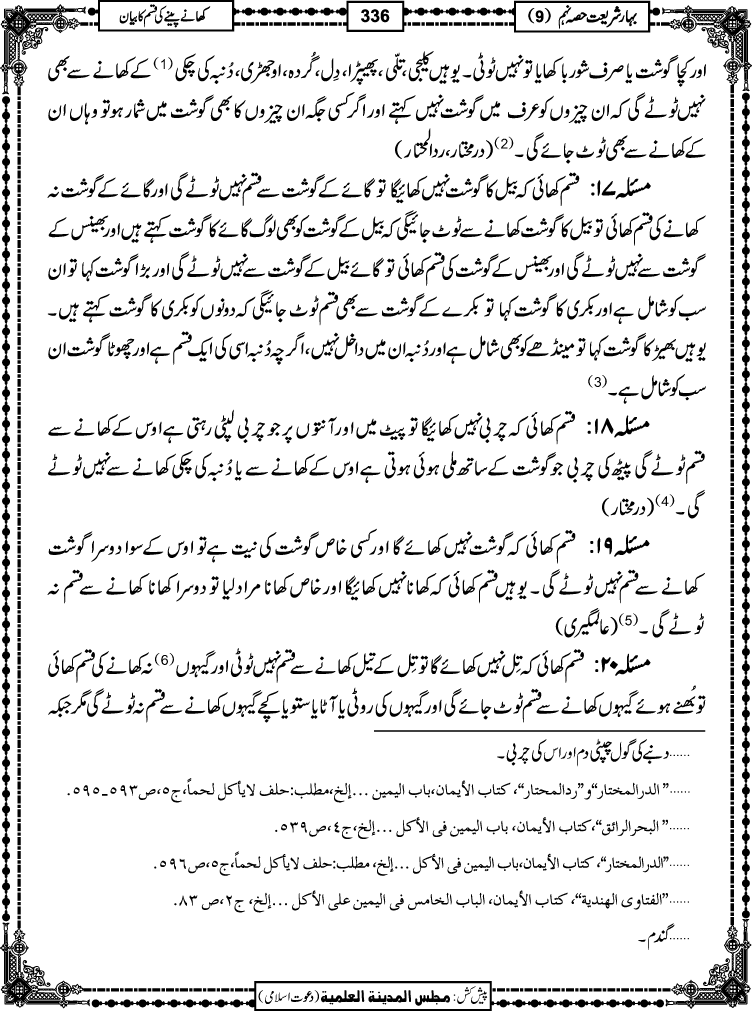 بہار شریعت حصہ نہم (9)
336
کھانے پینے کی قسم کا بیان
اور کچا گوشت یا صرف شوربا کھایا تو نہیں ٹوٹی۔ یوہیں کلیجی، تلّی، پھیپڑا، دِل، گُردہ، اوجھڑی، دُنبہ کی چکی (1) کے کھانے سے بھی
نہیں ٹوٹے گی کہ ان چیزوں کو عرف میں گوشت نہیں کہتے اور اگر کسی جگہ ان چیزوں کا بھی گوشت میں شمار ہو تو وہاں ان
کے کھانے سے بھی ٹوٹ جائے گی۔(2) (درمختار، ردالمحتار)
مسئلہ ۱۷: قسم کھائی کہ بیل کا گوشت نہیں کھائیگا تو گائے کے گوشت سے قسم نہیں ٹوٹے گی اور گائے کے گوشت نہ
کھانے کی قسم کھائی تو بیل کا گوشت کھانے سے ٹوٹ جائیگی کہ بیل کے گوشت کو بھی لوگ گائے کا گوشت کہتے ہیں اور بھینس کے
گوشت سے نہیں ٹوٹے گی اور بھینس کے گوشت کی قسم کھائی تو گائے بیل کے گوشت سے نہیں ٹوٹے گی اور بڑا گوشت کہا تو ان
سب کو شامل ہے اور بکری کا گوشت کہا تو بکرے کے گوشت سے بھی قسم ٹوٹ جائیگی کہ دونوں کو بکری کا گوشت کہتے ہیں۔
یوہیں بھیڑ کا گوشت کہا تو مینڈھے کو بھی شامل ہے اور دُنبہ ان میں داخل نہیں، اگرچہ دُنبہ اسی کی ایک قسم ہے اور چھوٹا گوشت ان
سب کو شامل ہے۔(3)
مسئلہ ۱۸: قسم کھائی کہ چربی نہیں کھائیگا تو پیٹ میں اور آنتوں پر جو چربی لپٹی رہتی ہے اوس کے کھانے سے
قسم ٹوٹے گی پیٹھ کی چربی جو گوشت کے ساتھ ملی ہوئی ہوتی ہے اوس کے کھانے سے یا دُنبہ کی چکی کھانے سے نہیں ٹوٹے
گی۔(4) (درمختار)
مسئلہ ۱۹: قسم کھائی کہ گوشت نہیں کھائے گا اور کسی خاص گوشت کی نیت ہے تو اوس کے سوا دوسرا گوشت
کھانے سے قسم نہیں ٹوٹے گی۔ یوہیں قسم کھائی کہ کھانا نہیں کھائیگا اور خاص کھانا مراد لیا تو دوسرا کھانا کھانے سے قسم نہ
ٹوٹے گی۔(5) (عالمگیری)
مسئلہ ۲۰: قسم کھائی کہ تِل نہیں کھائے گا تو تِل کے تیل کھانے سے قسم نہیں ٹوٹی اور گیہوں (6) نہ کھانے کی قسم کھائی
تو بُھنے ہوئے گیہوں کھانے سے قسم ٹوٹ جائے گی اور گیہوں کی روٹی یا آٹا یا ستو یا کچے گیہوں کھانے سے قسم نہ ٹوٹے گی مگر جبکہ
......دنبے کی گول چپٹی دم اور اس کی چربی۔
......”الدرالمختار“و”ردالمحتار“، کتاب الأیمان،باب الیمین...إلخ،مطلب:حلف لایأکل لحماً،ج۵،ص۵۹۳۔۵۹۵.
......”البحرالرائق“،کتاب الأیمان، باب الیمین فی الأکل...إلخ،ج٤،ص۵۳۹.
......”الدرالمختار“، کتاب الأیمان،باب الیمین فی الأکل...إلخ، مطلب:حلف لایأکل لحماً،ج۵،ص۵۹٦.
......”الفتاوی الهندیة“، کتاب الأیمان، الباب الخامس فی الیمین علی الأکل...إلخ، ج۲،ص ۸۳.
......گندم۔
پیش کش: مجلس المدینة العلمیة (دعوت اسلامی)